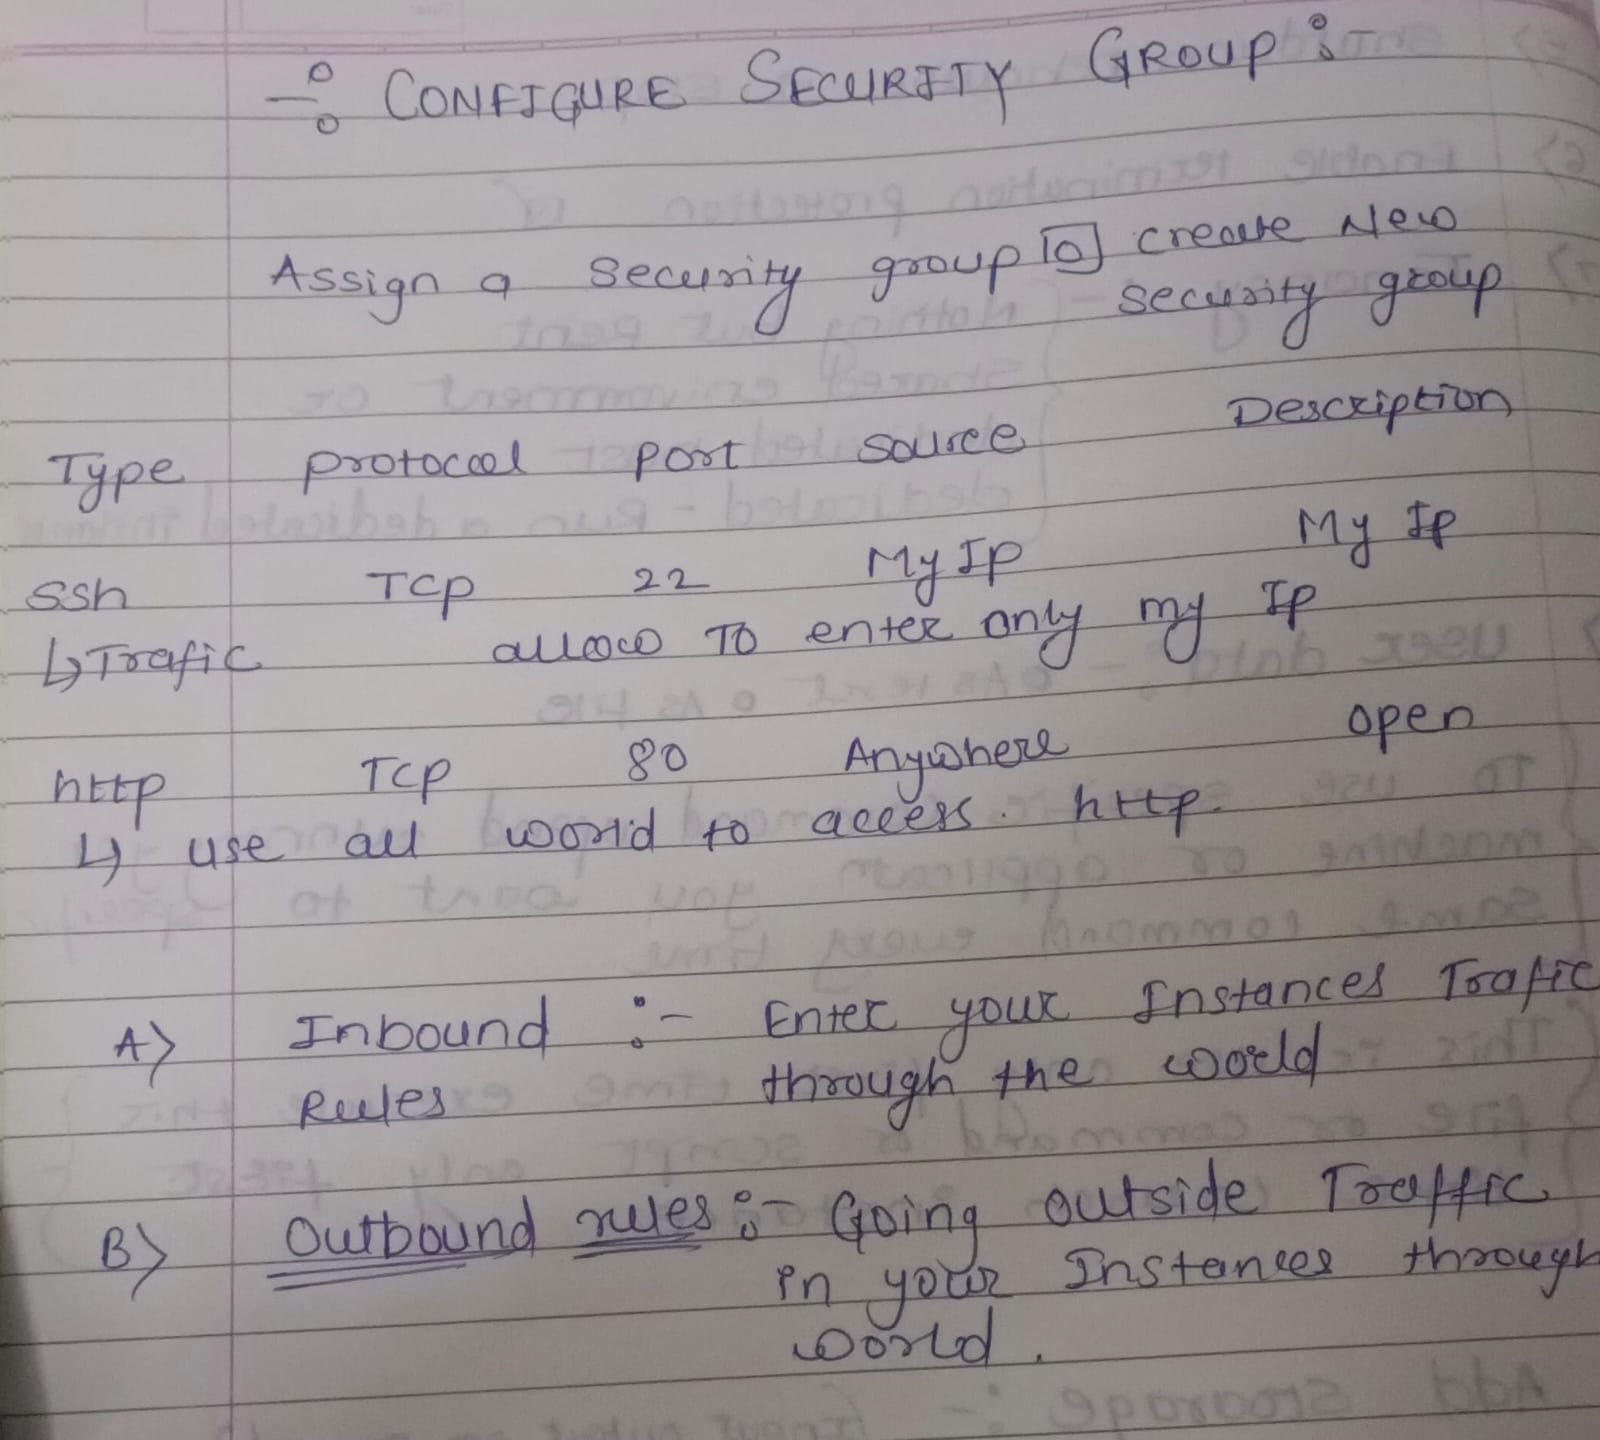 -: CONFIGURE SECURITY GROUP :-
Assign a security group [o] create New
security group
Type protocol port source Description
ssh TCP 22 My IP My Ip
↳ Trafic allow TO enter only my Ip
http TCP 80 Anywhere open
↳ use all world to access. http.
A) Inbound :- Enter your Instances Trafic
Rules through the world
B) Outbound rules :- Going outside Traffic
in your Instances through
world.